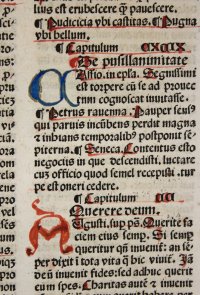 est erubescere ꝙ pauescere.
¶ Pudicicia vbi castitas. ¶ Pugna
vbi bellum.
¶ Capitulum CXCIX
De pusillanimitate
Assio. in epl̄a. Segnissimū
est torpere cū se ad prouectum
cognoscat inuitasse.
¶ Petrus rauenna. Pauper fecul'
qui paruis incūbens perit magna
& inhians temporalib' postponit sẽ
piterna. ¶ Seneca. Contentus esto
negociis in que descendisti, luctare
cuȝ officio quod semel recepisti. turpe
est oneri cedere.
¶ Capitulum CC
Querere deum.
Augusti. sup ps. Querite faciem
eius semp. Si semp
queritur qñ inuenit: an semper
dixit i tota vita qͣ hic viuit. Ja
deñ inuenit fides: sed adhuc querit
eum spes. Caritas autē & inuenit